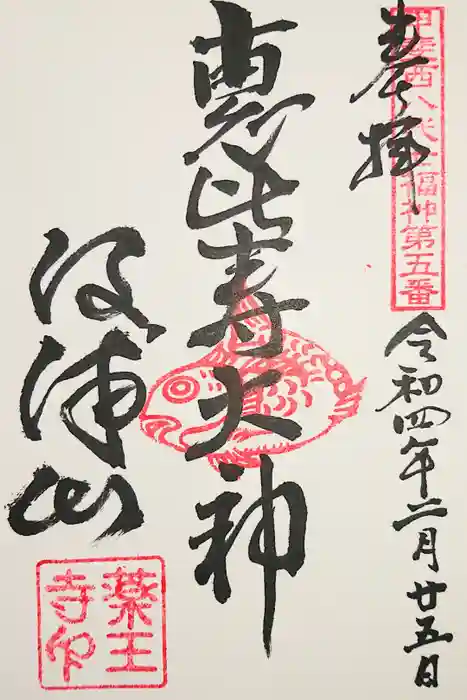 奉拝
甲斐西八代七福神第五番
令和四年二月廿五日
恵比寿大神
汲浦山
薬王
寺印